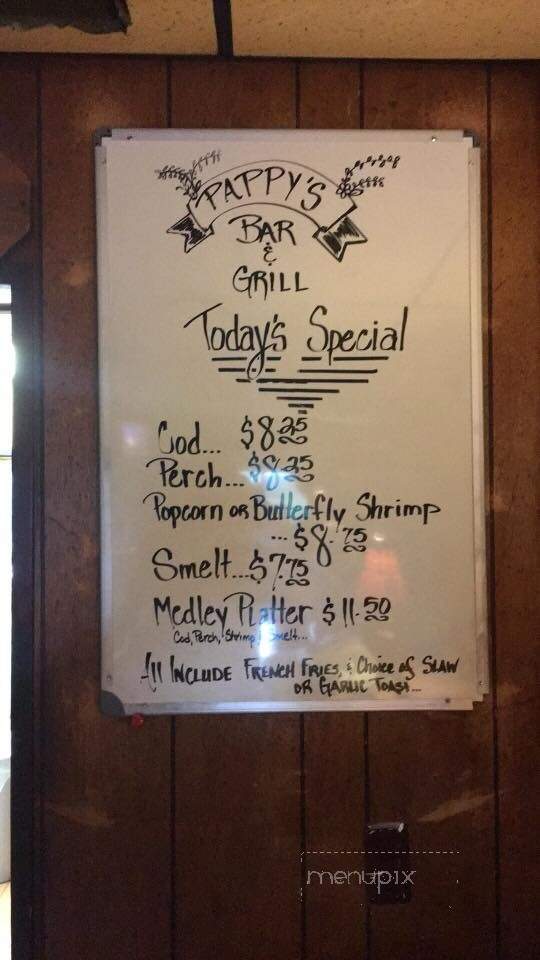 PAPPY'S
BAR
&
GRILL
Today's Special
Cod... $8.25
Perch... $8.25
Popcorn or Butterfly Shrimp
... $8.75
Smelt... $7.75
Medley Platter $11.50
Cod, Perch, Shrimp & Smelt...
All INCLUDE FRENCH FRIES, & Choice of SLAW
OR GARLIC TOAST...
menupix